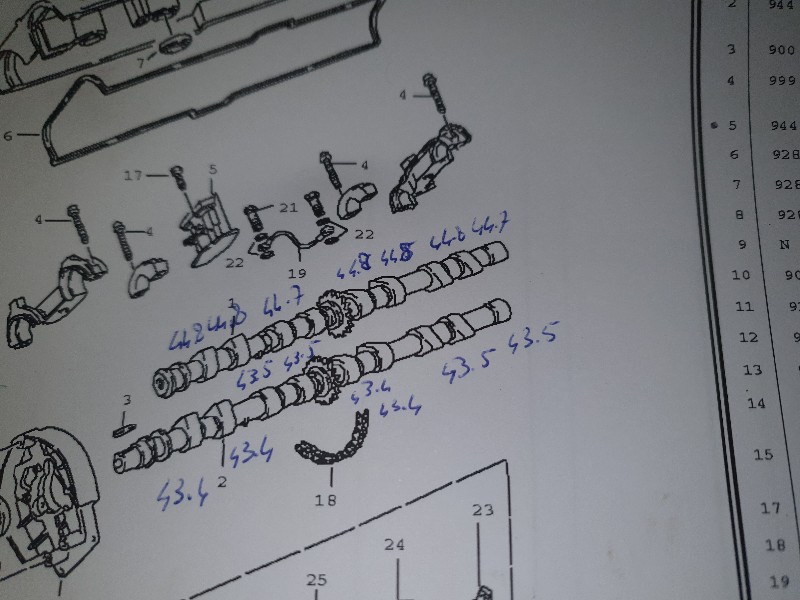 2 944
7
3 900
4
4 999
5 944
6
4
17
5
6 928
7 928
21
4
4
8 928
22
22
44.7
9 N
19
44.8
10 90
1
44.7
11
12
43.5
43.5
13
43.5
43.4
3
43.4
14
43.4
2
15
43.4
18
23
17
24
18
25
19